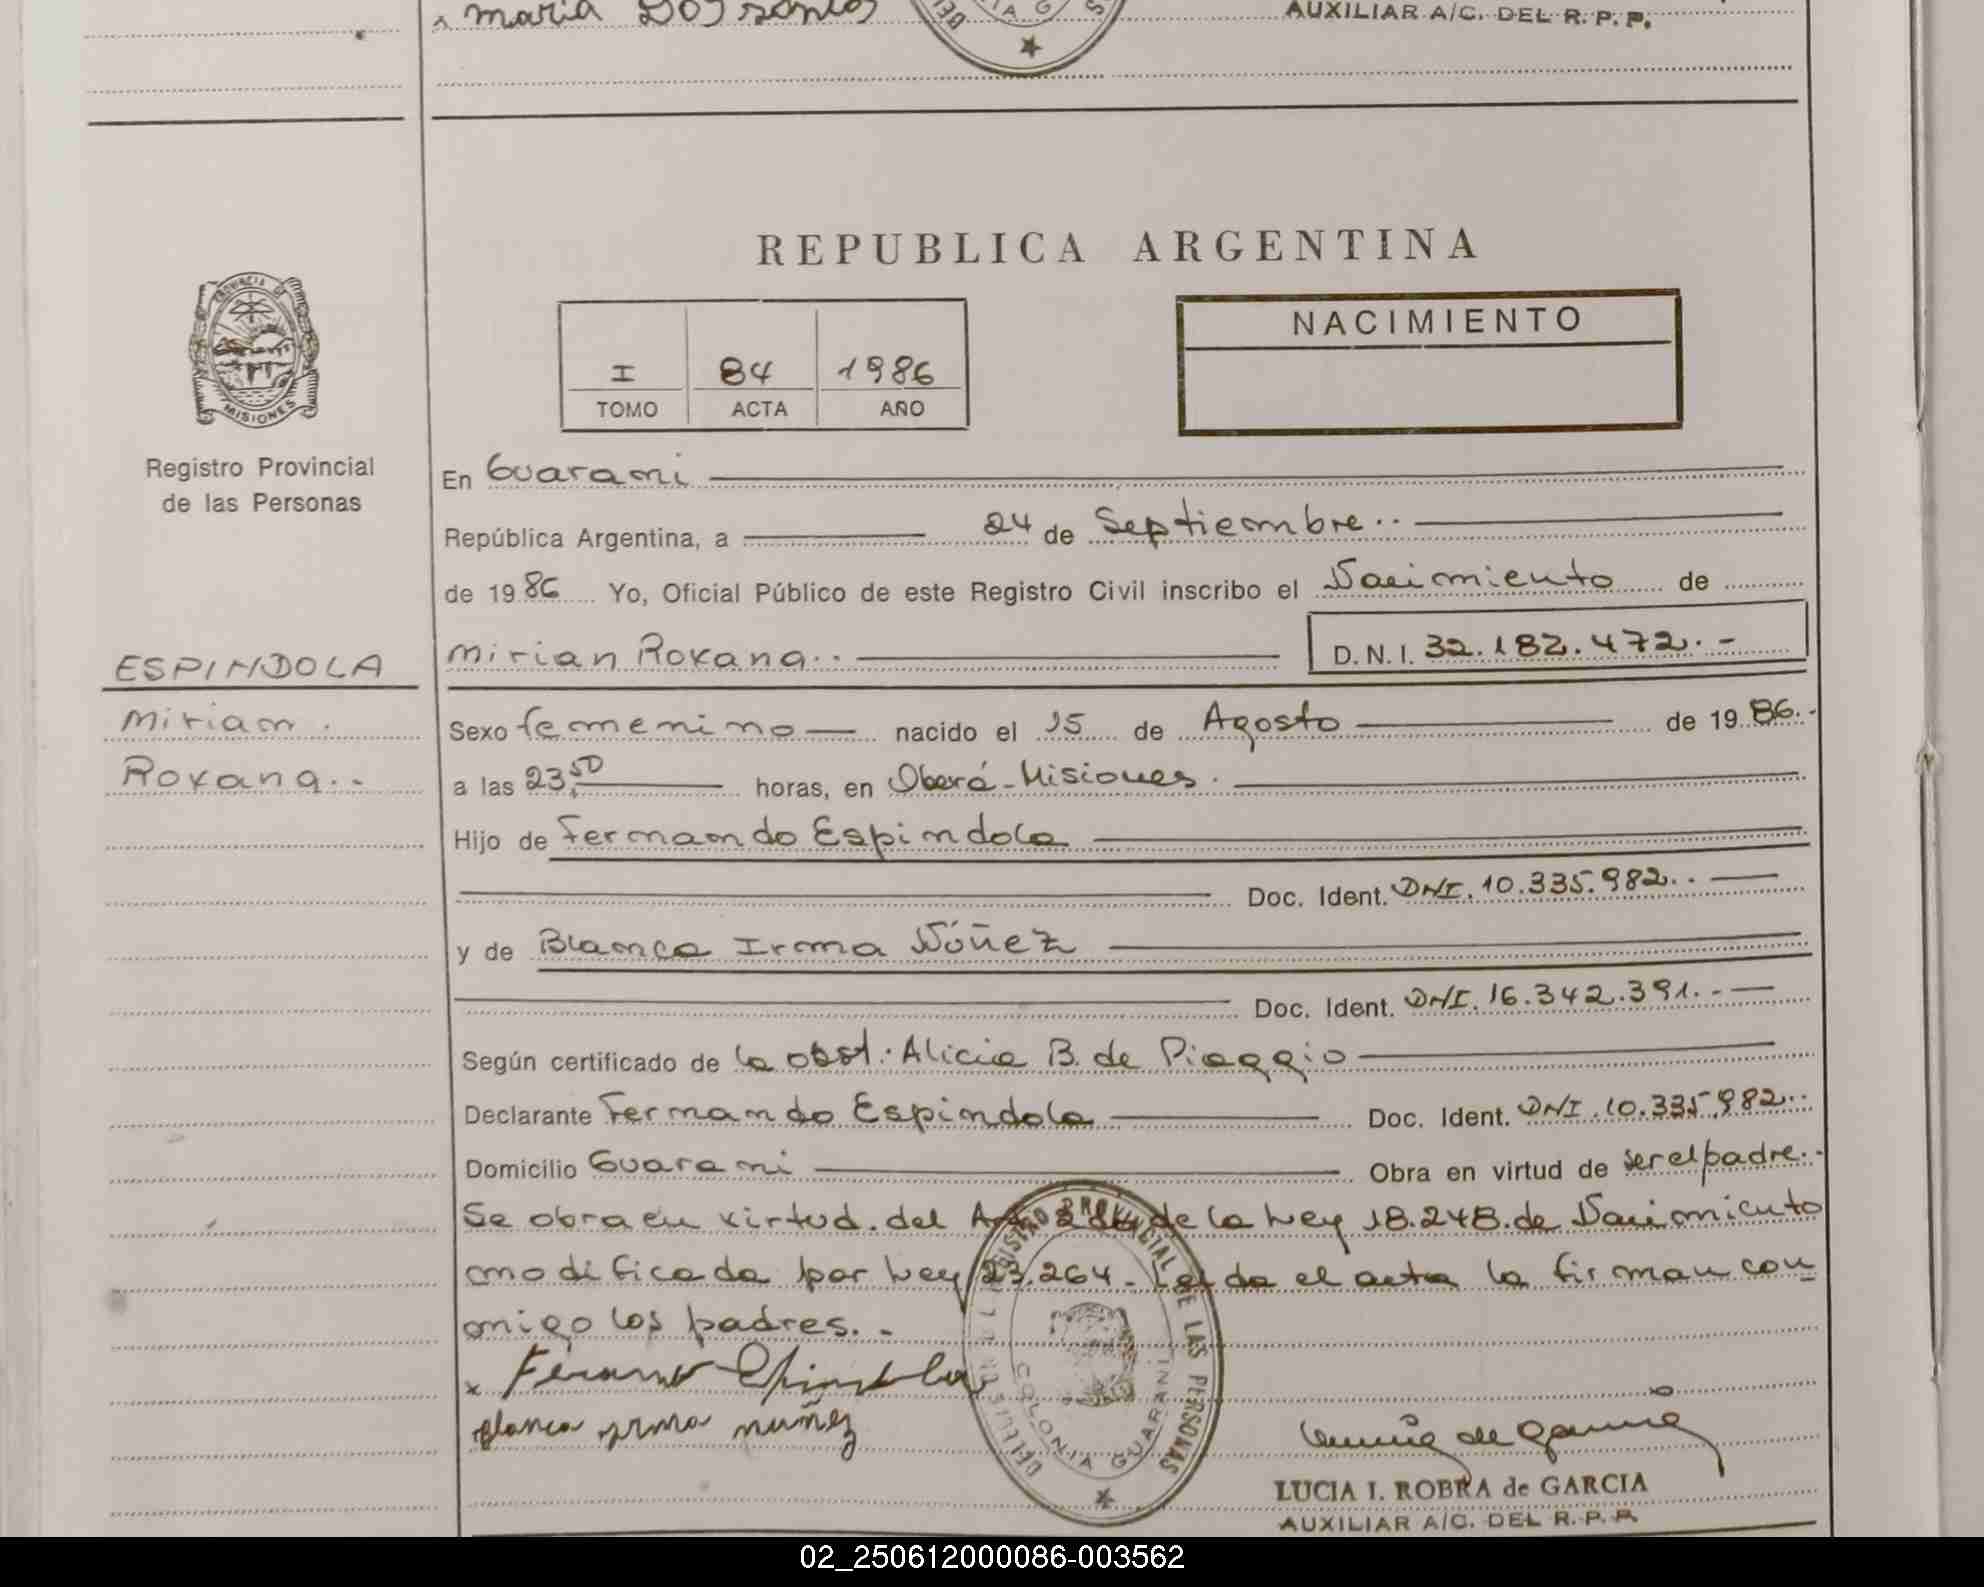 Maria Dos Santos
AUXILIAR A/C. DEL R. P. P.
REPUBLICA ARGENTINA
PROVINCIA DE
MISIONES
Registro Provincial
de las Personas
I 84 1986
TOMO ACTA AÑO
NACIMIENTO
En Guarani
República Argentina, a 24 de Septiembre..
de 1986 Yo, Oficial Público de este Registro Civil inscribo el Nacimiento de
ESPINDOLA
Mirian.
Roxana..
Mirian Roxana.. D.N.I. 32.182.472.-
Sexo femenino nacido el 15 de Agosto de 1986.-
a las 23,50 horas, en Oberá-Misiones.
Hijo de Fernando Espindola
Doc. Ident. DNI. 10.335.982..
y de Blanca Irma Núñez
Doc. Ident. DNI. 16.342.391.-
Según certificado de la obst. Alicia B. de Piaggio
Declarante Fernando Espindola Doc. Ident. DNI. 10.335.982..
Domicilio Guarani Obra en virtud de ser el padre..
Se obra en virtud. del Art. 2do de la Ley 18.248. de Nacimiento
modificada por Ley 23.264. Leida el acta la firman con
migo los padres..
x Fernando Espindola
Blanca yrma nuñez
REGISTRO PROVINCIAL DE LAS PERSONAS
COLONIA GUARANI
LUCIA I. ROBRA de GARCIA
AUXILIAR A/C. DEL R. P. P.
02_250612000086-003562